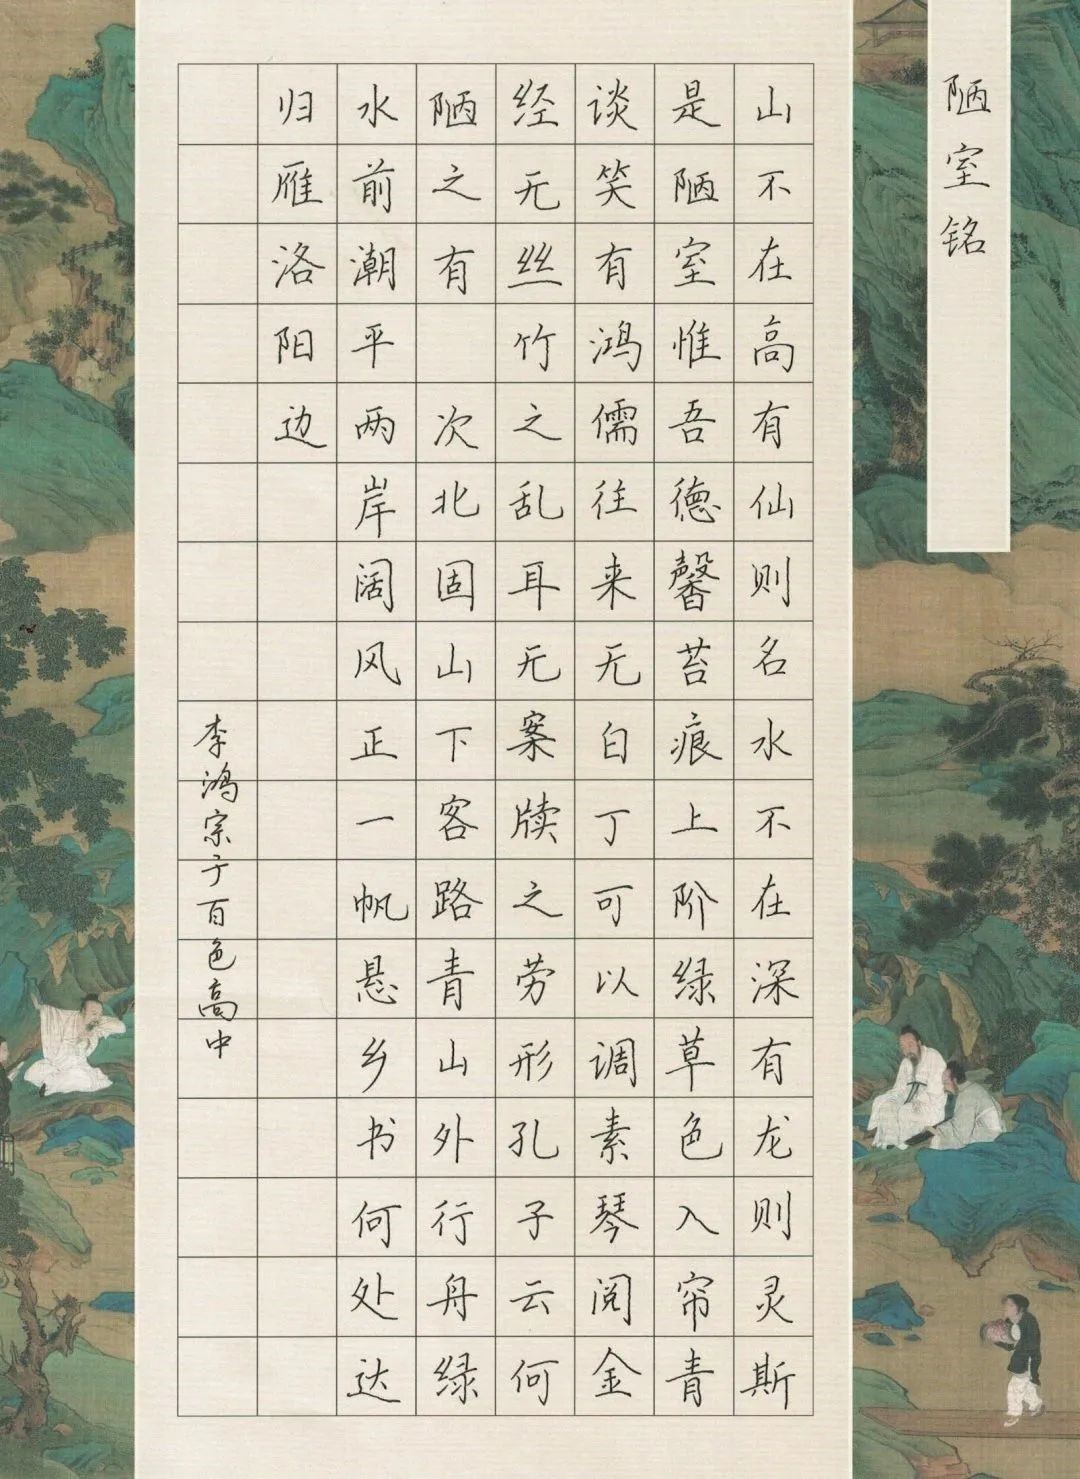 陋室铭
山不在高有仙则名水不在深有龙则灵斯
是陋室惟吾德馨苔痕上阶绿草色入帘青
谈笑有鸿儒往来无白丁可以调素琴阅金
经无丝竹之乱耳无案牍之劳形孔子云何
陋之有 次北固山下客路青山外行舟绿
水前潮平两岸阔风正一帆悬乡书何处达
归雁洛阳边
李鸿宗于百色高中